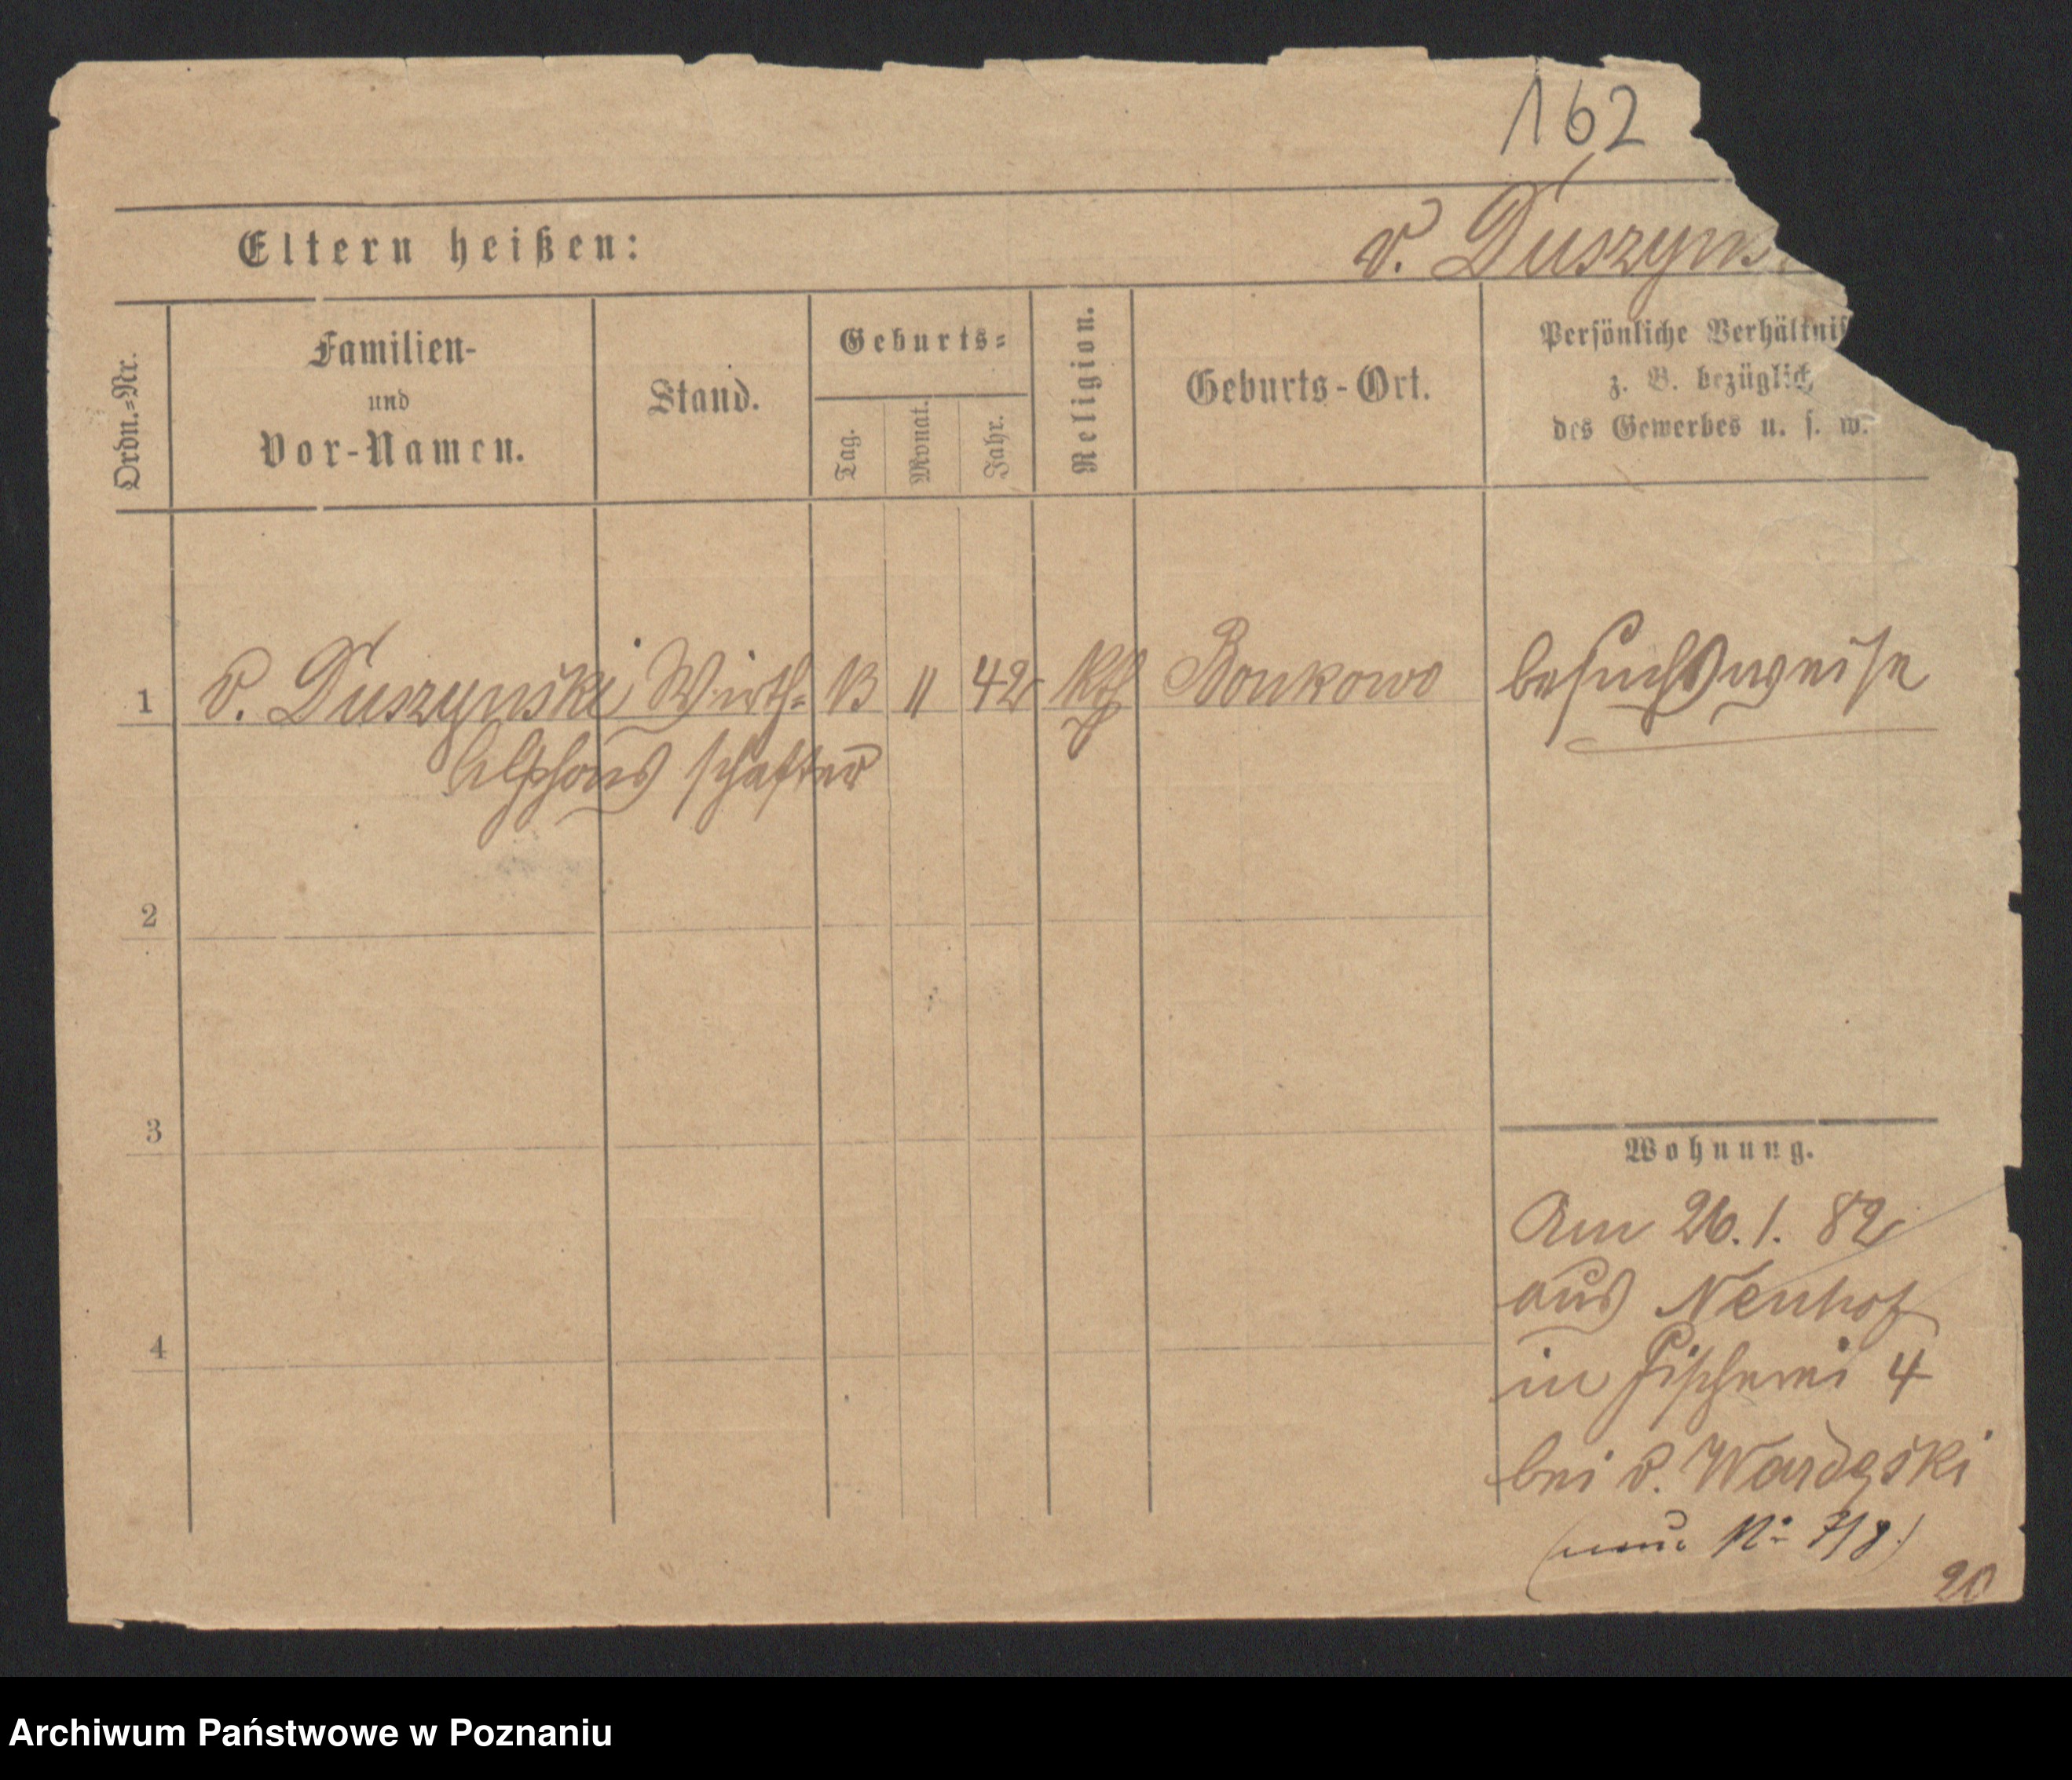 162
Eltern heißen:
v. Duszyns
Ordn.=Nr.
Familien-
und
Vor-Namen.
Stand.
Geburts=
Tag.
Monat.
Jahr.
Religion.
Geburts-Ort.
Persönliche Verhältnis
z. B. bezüglich
des Gewerbes u. s. w.
1 v. Duszynski Wirth= 13 11 42 Kth Bonkowo besuchsweise
Alphons schafter
2
3
4
Wohnung.
Am 26. 1. 82
aus Neuhof
in Fischerei 4
bei v. Wardęski
(neue No 7/8)
20
Archiwum Państwowe w Poznaniu